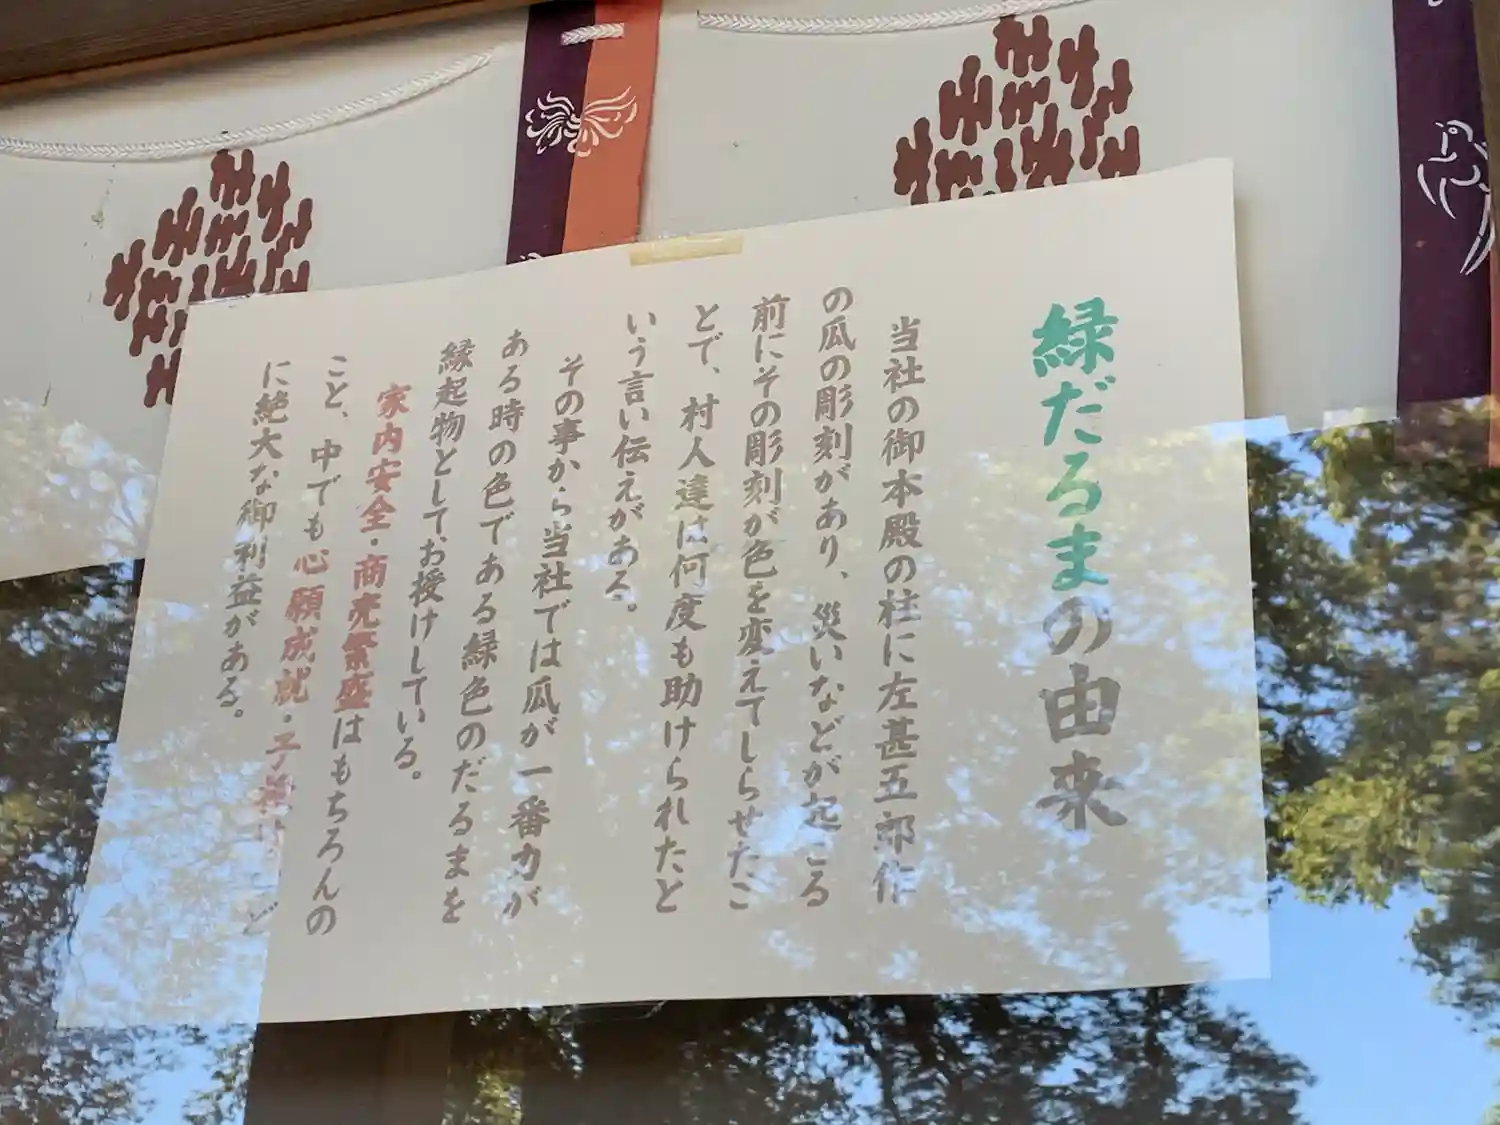 緑だるまの由来
当社の御本殿の柱に左甚五郎作
の瓜の彫刻があり、災いなどが起こる
前にその彫刻が色を変えてしらせたこ
とで、村人達は何度も助けられたと
いう言い伝えがある。
その事から当社では瓜が一番力が
ある時の色である緑色のだるまを
縁起物としてお授けしている。
家内安全・商売繁盛はもちろんの
こと、中でも心願成就・子授け
に絶大な御利益がある。